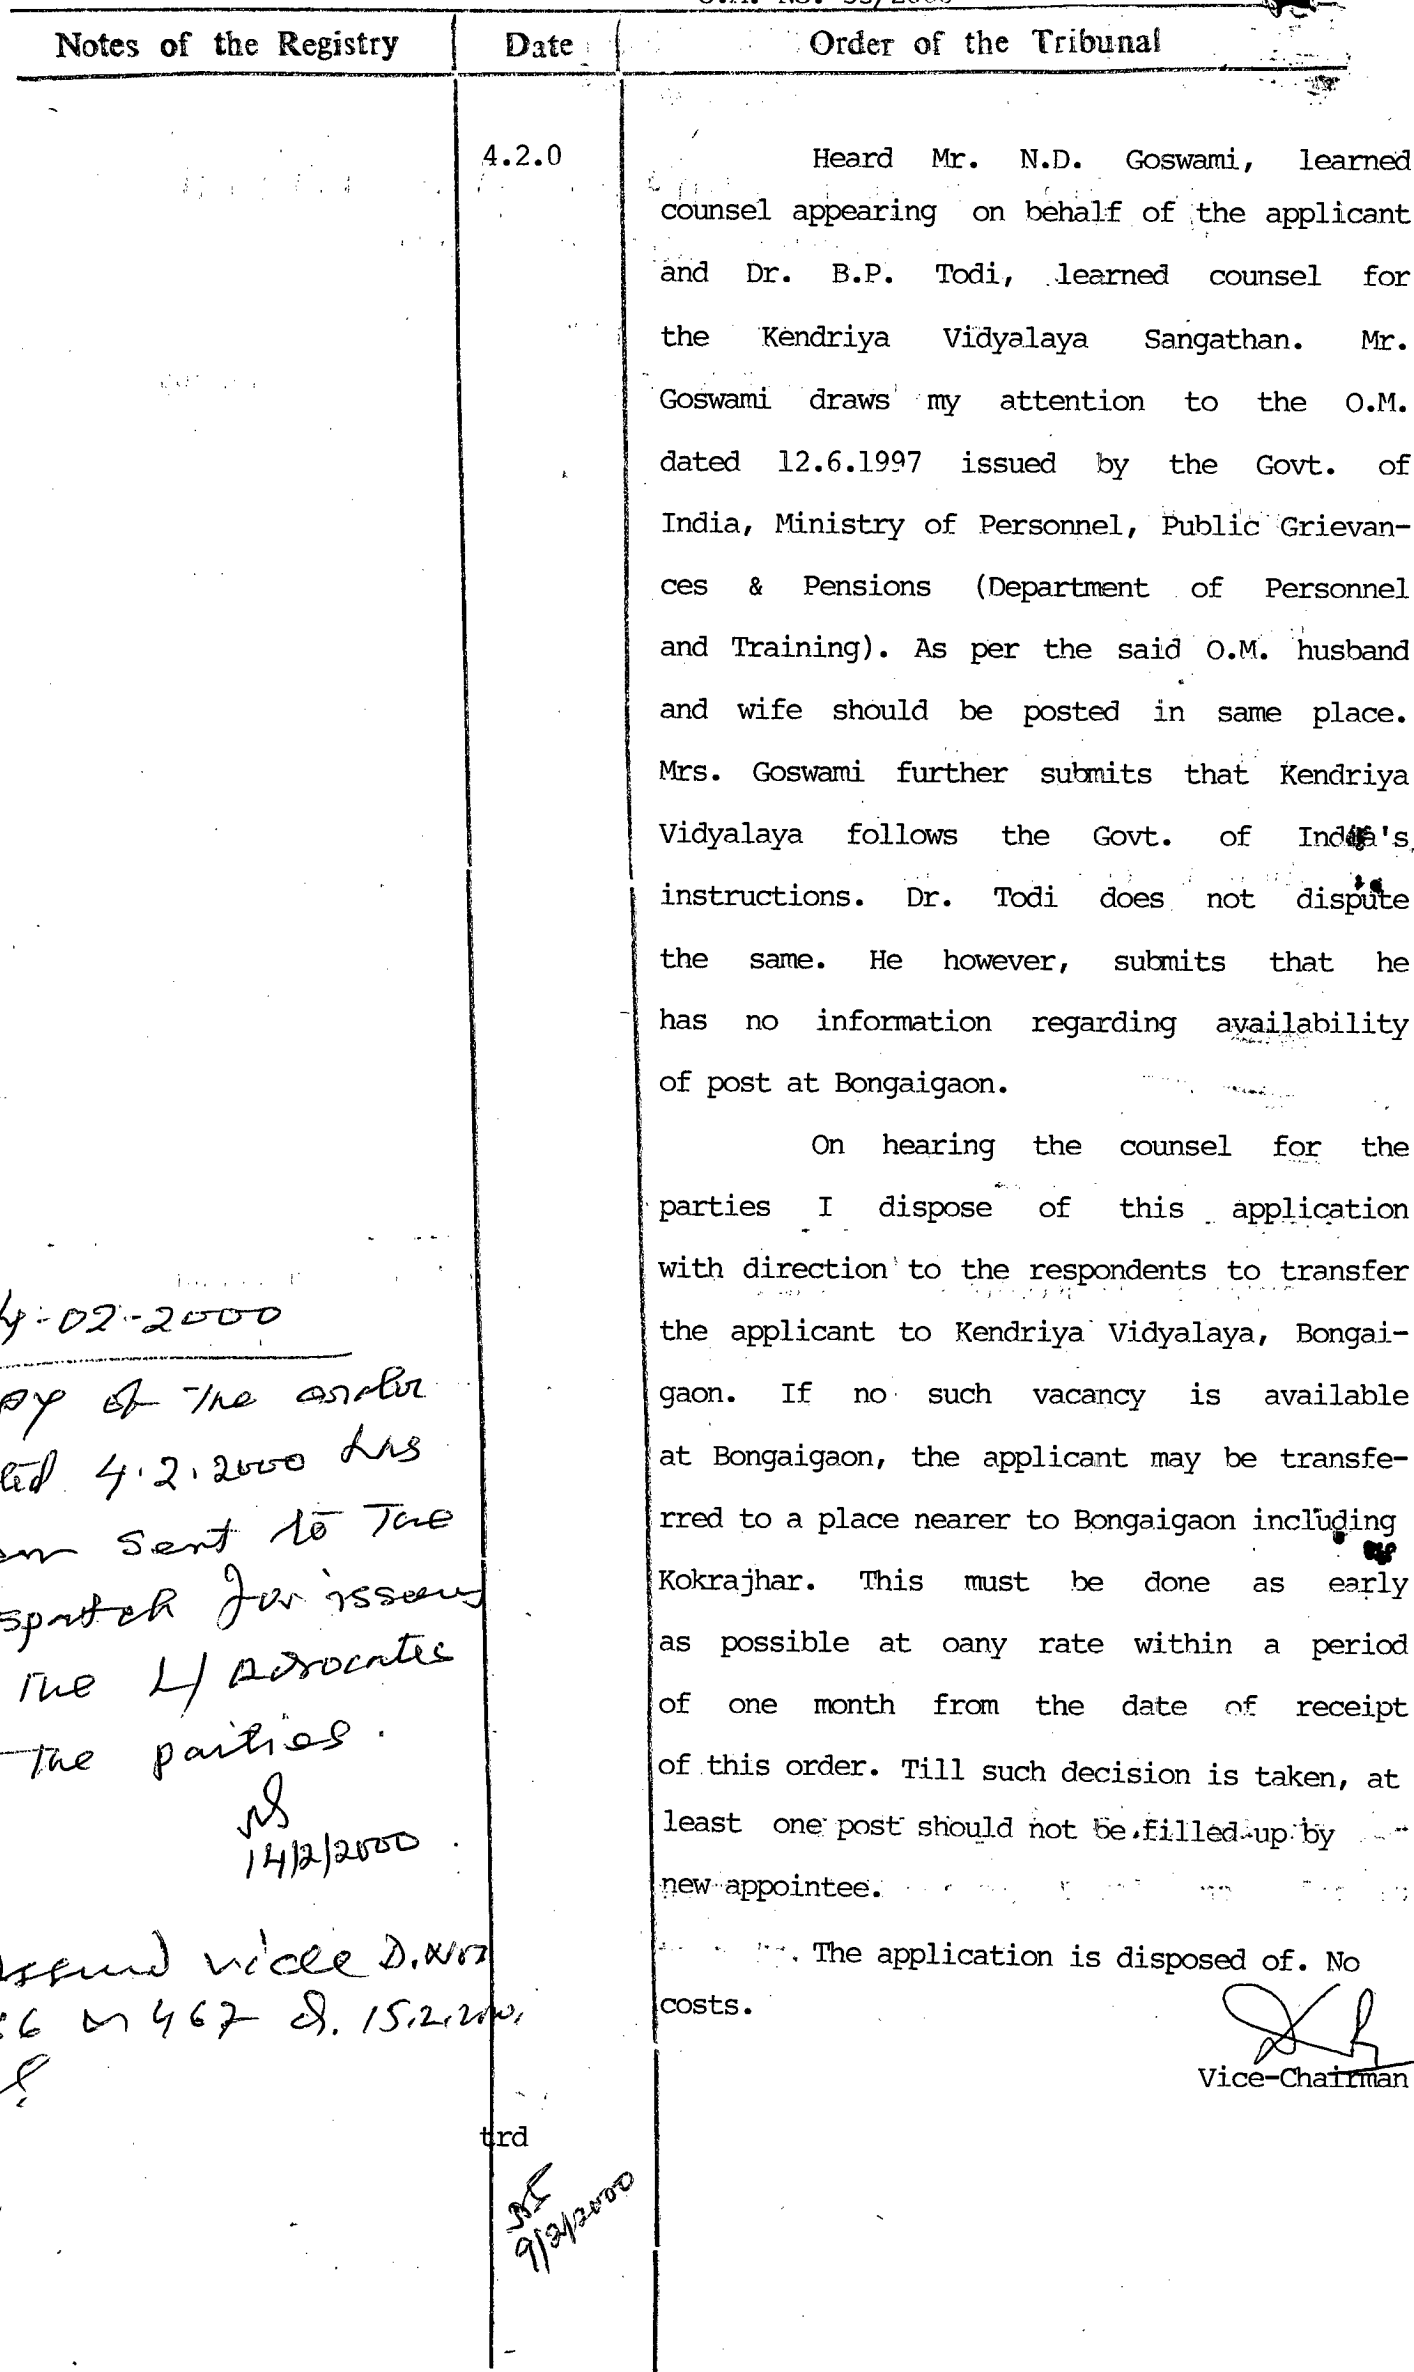 Notes of the Registry
Date
Order of the Tribunal
4.2.0
Heard Mr. N.D. Goswami, learned
counsel appearing on behalf of the applicant
and Dr. B.P. Todi, learned counsel for
the Kendriya Vidyalaya Sangathan. Mr.
Goswami draws my attention to the O.M.
dated 12.6.1997 issued by the Govt. of
India, Ministry of Personnel, Public Grievan-
ces & Pensions (Department of Personnel
and Training). As per the said O.M. husband
and wife should be posted in same place.
Mrs. Goswami further submits that Kendriya
Vidyalaya follows the Govt. of India's
instructions. Dr. Todi does not dispute
the same. He however, submits that he
has no information regarding availability
of post at Bongaigaon.
On hearing the counsel for the
parties I dispose of this application
with direction to the respondents to transfer
the applicant to Kendriya Vidyalaya, Bongai-
gaon. If no such vacancy is available
at Bongaigaon, the applicant may be transfe-
rred to a place nearer to Bongaigaon including
Kokrajhar. This must be done as early
as possible at oany rate within a period
of one month from the date of receipt
of this order. Till such decision is taken, at
least one post should not be filled up by
new appointee.
The application is disposed of. No
costs.
Vice-Chairman
trd
9/2/2000
4-02-2000
py of the order
ted 4.2.2000 has
sent to the
spatch for issuing
the L/Advocates
the parties.
14/2/2000
vide D.No
467 d. 15.2.2000